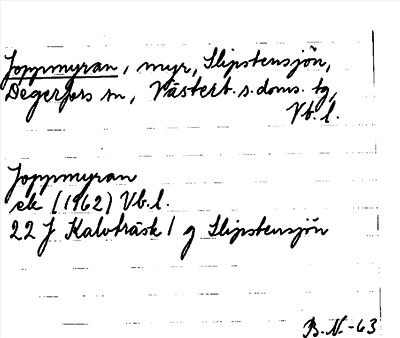 Joppmyran, myr, Slipstensjön,
Degerfors sn, Västerb. s. doms. tg,
Vb. l.
Joppmyran
ek (1962) Vb. l.
22 J Kalvträsk / g Slipstensjön
B. N. -63